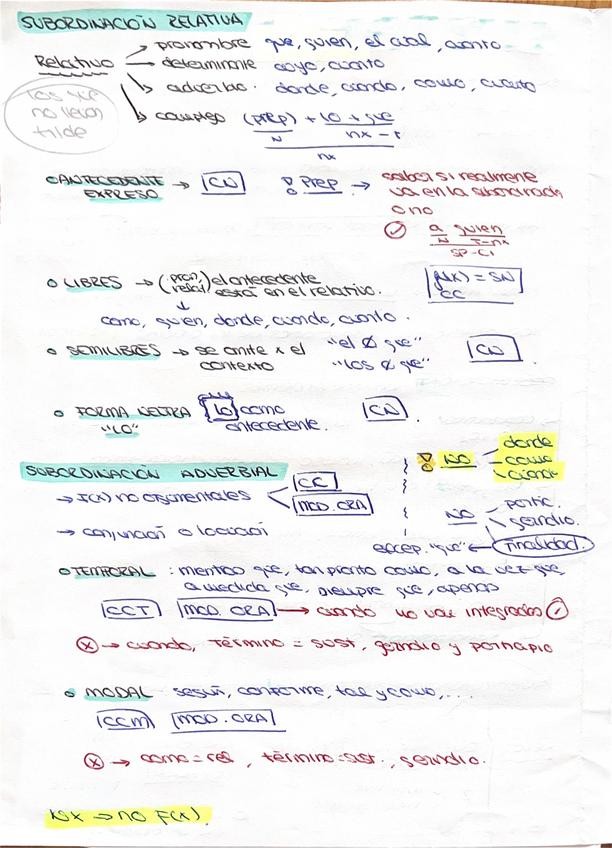 SUBORDINACIÓN RELATIVA
Relativo → pronombre que, quien, el cual, cuanto
→ determinante cuyo, cuanto
→ adverbio. donde, cuando, como, cuanto
→ complejo (prep) + lo + que
N nx - t
nx
los que no llevan tilde
○ ANTECEDENTE EXPRESO → CN ! PREP → saber si realmente
va en la subordinada
o no
✓ a quien
N T-nx
SP-CI
○ LIBRES → (pron. relat) el antecedente está en el relativo. f(x) = SN
CC
↓
como, quien, donde, cuando, cuanto.
○ SEMILIBRES → se omite x el contexto "el Ø que"
"los Ø que" CN
○ FORMA NEUTRA "LO" LO como antecedente. CN
SUBORDINACIÓN ADVERBIAL
→ F(x) no argumentales CC
MOD. ORA
→ conjunción o locución
! NO donde
como
cuando
NO partic.
gerundio.
finalidad.
excep. "que" ←
○ TEMPORAL : mientras que, tan pronto como, a la vez que,
a medida que, siempre que, apenas
CCT MOD. ORA → cuando no van integradas ✓
ⓧ → cuando, término = sust, gerundio y participio
○ MODAL según, conforme, tal y como, ...
CCM MOD. ORA
ⓧ → como = rel, término = sust., gerundio.
NX → no F(x).